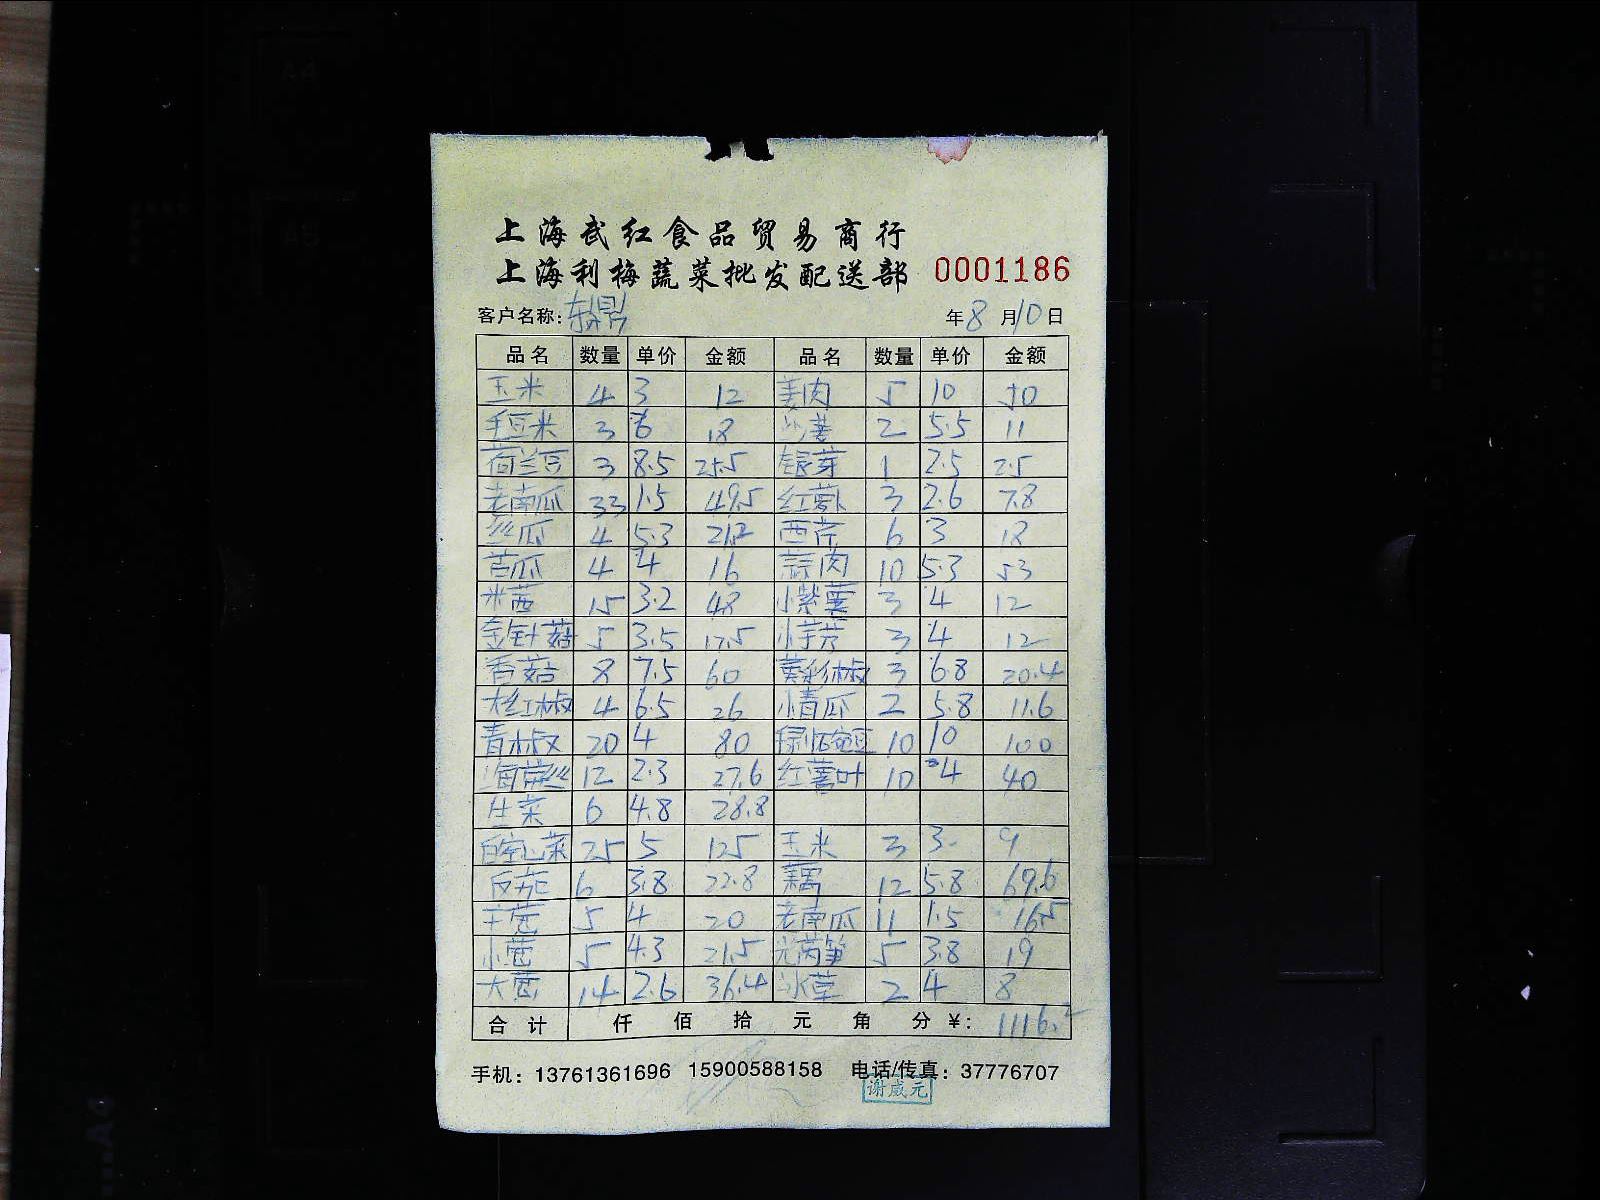 上海武红食品贸易商行
上海利梅蔬菜批发配送部 0001186
客户名称: 东鼎 年8月10日
品名 数量 单价 金额 品名 数量 单价 金额
玉米 4 3 12 姜肉 5 10 50
毛豆米 3 6 18 沙姜 2 5.5 11
荷兰豆 3 8.5 25.5 银芽 1 2.5 2.5
老南瓜 33 1.5 49.5 红萝卜 3 2.6 7.8
丝瓜 4 5.3 21.2 西芹 6 3 18
苦瓜 4 4 16 蒜肉 10 5.3 53
米茜 15 3.2 48 小紫薯 3 4 12
金针菇 5 3.5 17.5 小芋艿 3 4 12
香菇 8 7.5 60 黄彩椒 3 6.8 20.4
大红椒 4 6.5 26 小青瓜 2 5.8 11.6
青椒 20 4 80 10 10 100
海带丝 12 2.3 27.6 红薯叶 10 4 40
生菜 6 4.8 28.8
白空心菜 25 5 125 玉米 3 3 9
反茄 6 3.8 22.8 藕 12 5.8 69.6
5 4 20 老南瓜 11 1.5 16.5
小葱 5 4.3 21.5 光莴笋 5 3.8 19
大葱 14 2.6 36.4 2 4 8
合计 仟 佰 拾 元 角 分 ¥: 1116.2
手机: 13761361696 15900588158 电话/传真: 37776707
谢成元